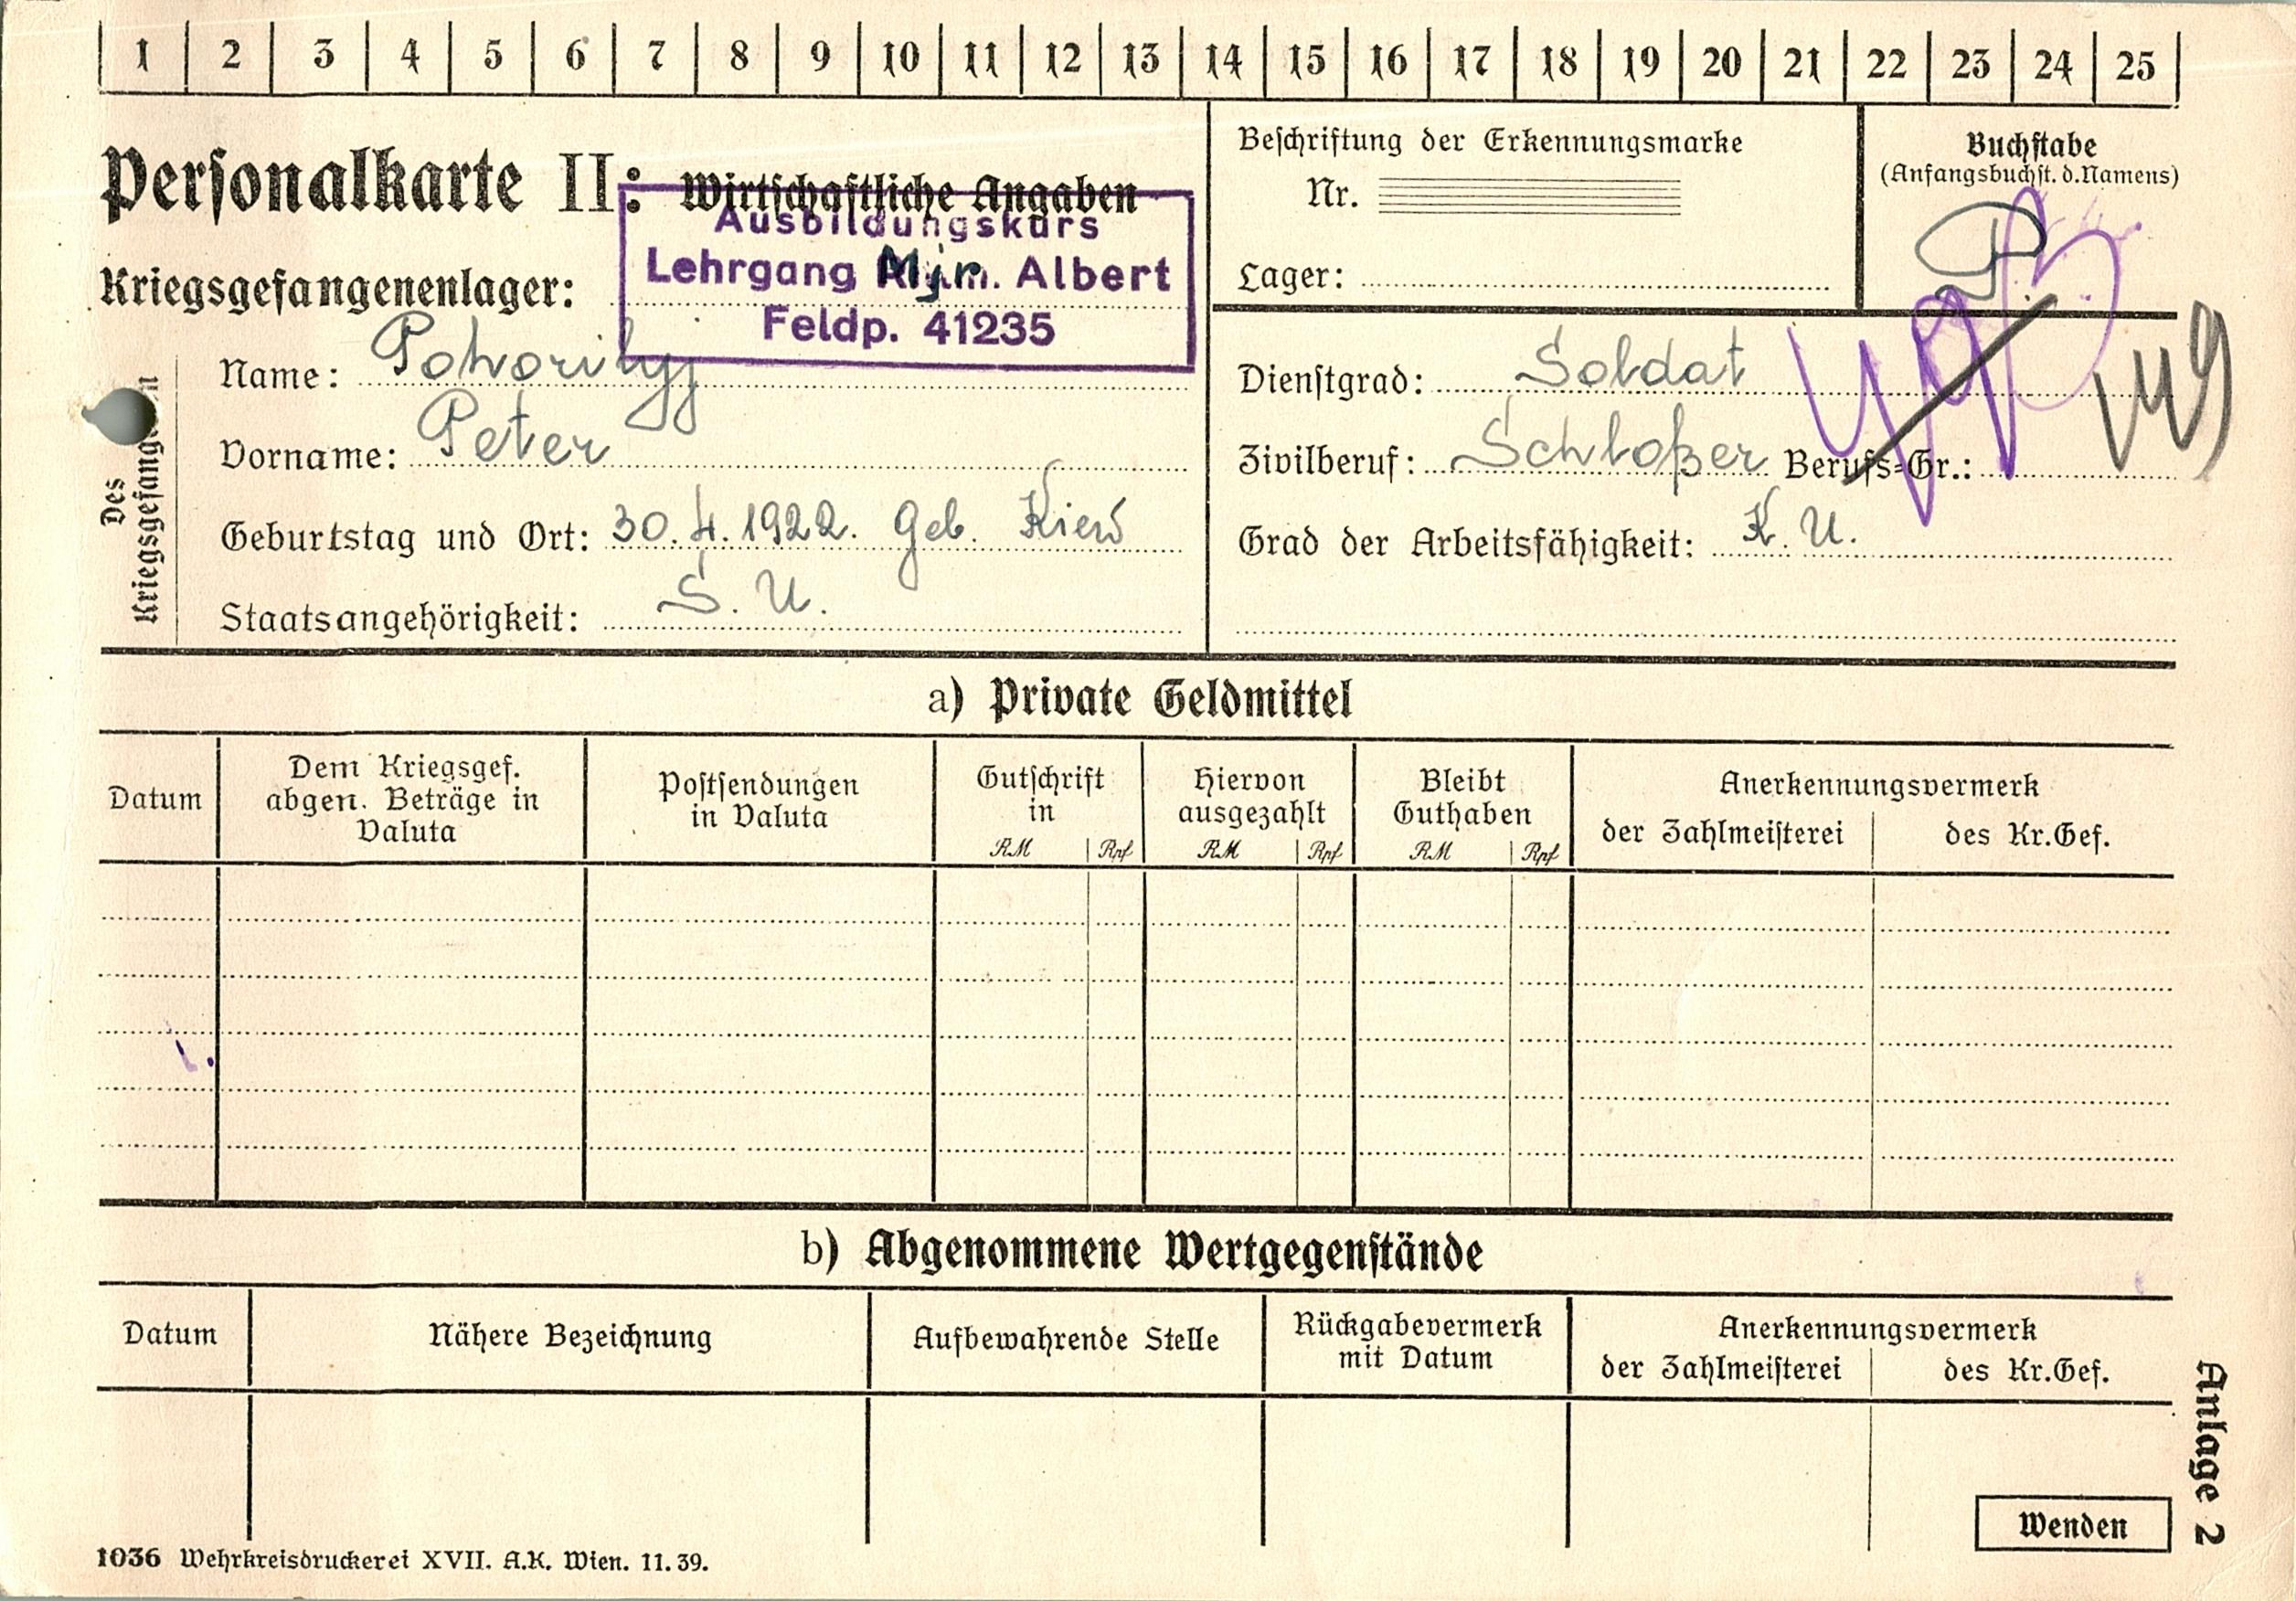 1 2 3 4 5 6 7 8 9 10 11 12 13 14 15 16 17 18 19 20 21 22 23 24 25
Personalkarte II: Wirtschaftliche Angaben
Ausbildungskurs
Lehrgang Mjr. Albert
Feldp. 41235
Kriegsgefangenenlager:
Des Kriegsgefangenen
Name: Pohorilyj
Vorname: Peter
Geburtstag und Ort: 30.4.1922. Geb. Kiew
Staatsangehörigkeit: S. U.
Beschriftung der Erkennungsmarke
Nr.
Lager:
Buchstabe
(Anfangsbuchst. d. Namens)
P
Dienstgrad: Soldat
Zivilberuf: Schloßer Berufs-Gr.:
149
Grad der Arbeitsfähigkeit: K. U.
a) Private Geldmittel
Datum
Dem Kriegsgef.
abgen. Beträge in
Valuta
Postsendungen
in Valuta
Gutschrift
in
RM Rpf
Hiervon
ausgezahlt
RM Rpf
Bleibt
Guthaben
RM Rpf
Anerkennungsvermerk
der Zahlmeisterei des Kr.Gef.
b) Abgenommene Wertgegenstände
Datum
Nähere Bezeichnung
Aufbewahrende Stelle
Rückgabevermerk
mit Datum
Anerkennungsvermerk
der Zahlmeisterei des Kr.Gef.
Wenden
Anlage 2
1036 Wehrkreisdruckerei XVII. A.K. Wien. 11.39.